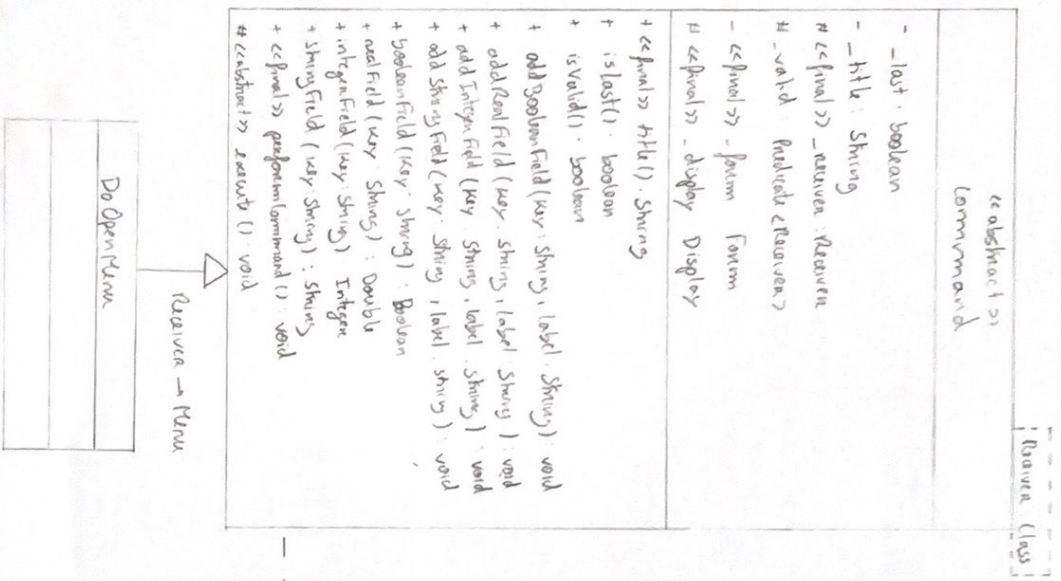 Receiver Class
<<abstract>>
Command
- _last : boolean
- _title : String
# <<final>> _receiver : Receiver
# _valid : Predicate <Receiver>
- <<final>> _form Form
# <<final>> _display Display
+ <<final>> title() : String
+ isLast() : boolean
+ isValid() : boolean
+ addBooleanField (key : String, label : String) : void
+ addRealField (key : String, label : String) : void
+ addIntegerField (key : String, label : String) : void
+ addStringField (key : String, label : String) : void
+ booleanField (key : String) : Boolean
+ realField (key : String) : Double
+ integerField (key : String) : Integer
+ stringField (key : String) : String
+ <<final>> performCommand () : void
# <<abstract>> execute () : void
Receiver → Menu
DoOpenMenu